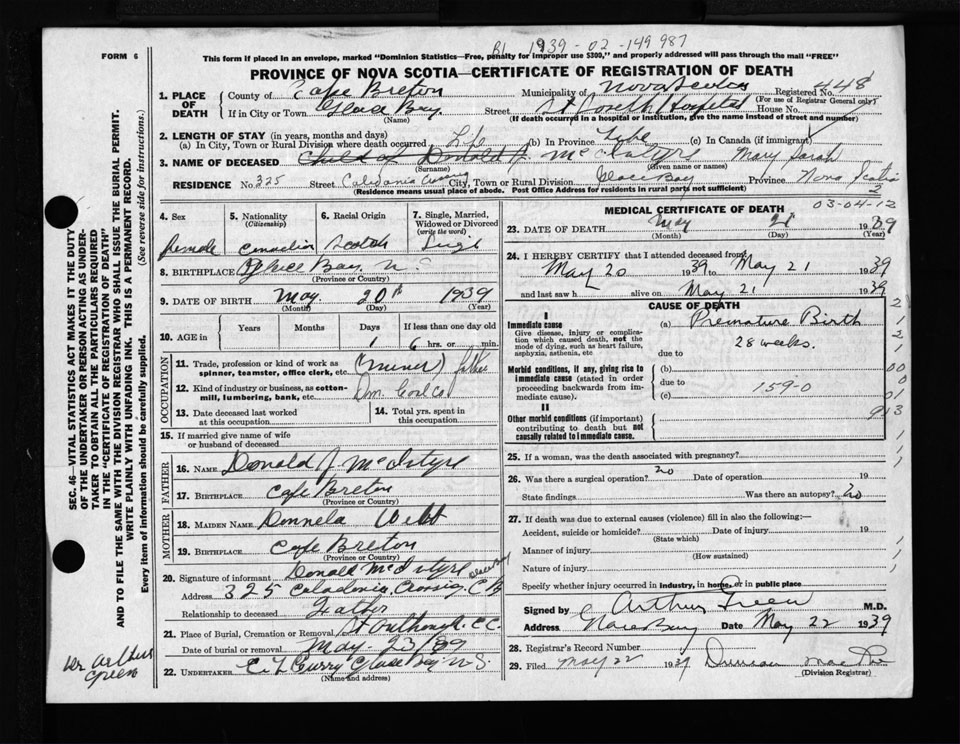 BL 1939-02-149987
FORM 6
This form if placed in an envelope, marked "Dominion Statistics—Free, penalty for improper use $300," and properly addressed will pass through the mail "FREE"
PROVINCE OF NOVA SCOTIA—CERTIFICATE OF REGISTRATION OF DEATH
1. PLACE OF DEATH
County of Cape Breton Municipality of Nova Scotia Registered No. 448
(For use of Registrar General only)
If in City or Town Glace Bay. Street St Joseph Hospital House No.
(Name) (If death occurred in a hospital or institution, give the name instead of street and number)
2. LENGTH OF STAY (in years, months and days)
(a) In City, Town or Rural Division where death occurred Life (b) In Province Life (c) In Canada (if immigrant)
3. NAME OF DECEASED Child of Donald J. McIntyre Mary Sarah
(Surname) (Given name or names)
RESIDENCE No. 325 Street Caledonia Crossing City, Town or Rural Division Glace Bay Province Nova Scotia
(Residence means usual place of abode. Post Office Address for residents in rural parts not sufficient)
2
03-04-12
4. Sex female
5. Nationality (Citizenship) Canadian
6. Racial Origin Scotch
7. Single, Married, Widowed or Divorced (write the word) Single
8. BIRTHPLACE Glace Bay, N.S
(Province or Country)
9. DATE OF BIRTH May 20th 1939
(Month) (Day) (Year)
10. AGE in Years Months Days If less than one day old
1 6 hrs. or min.
OCCUPATION
11. Trade, profession or kind of work as spinner, teamster, office clerk, etc. (Miner) father
12. Kind of industry or business, as cotton-mill, lumbering, bank, etc. Dom. Coal Co
13. Date deceased last worked at this occupation
14. Total yrs. spent in this occupation
15. If married give name of wife or husband of deceased
FATHER
16. NAME Donald J. McIntyre
17. BIRTHPLACE Cape Breton
(Province or Country)
MOTHER
18. MAIDEN NAME Donnela Webb
19. BIRTHPLACE Cape Breton
(Province or Country)
20. Signature of informant Donald McIntyre
Address 325 Caledonia Crossig. C B Glace Bay
Relationship to deceased Feather
21. Place of Burial, Cremation or Removal St Anthony R. C.C.
Date of burial or removal May. 23/39
22. UNDERTAKER Curry Glace Bay N S
(Name and address)
MEDICAL CERTIFICATE OF DEATH
23. DATE OF DEATH May 21 1939
(Month) (Day) (Year)
24. I HEREBY CERTIFY that I attended deceased from
May 20 1939 to May 21 1939
and last saw h alive on May 21 1939
CAUSE OF DEATH
I
Immediate cause
Give disease, injury or complication which caused death, not the mode of dying, such as heart failure, asphyxia, asthenia, etc
(a) Premature Birth
28 weeks.
due to
Morbid conditions, if any, giving rise to immediate cause (stated in order proceeding backwards from immediate cause).
(b)
due to 159-0
(c)
II
Other morbid conditions (if important) contributing to death but not causally related to immediate cause.
2
1
2
1
00
0
01
913
25. If a woman, was the death associated with pregnancy?
26. Was there a surgical operation? no Date of operation 19
State findings Was there an autopsy? no
27. If death was due to external causes (violence) fill in also the following:—
Accident, suicide or homicide? Date of injury 19
(State which)
Manner of injury
(How sustained)
Nature of injury
Specify whether injury occurred in industry, in home, or in public place
Signed by Arthur Green M.D.
Address Glace Bay Date May 22 1939
28. Registrar's Record Number
29. Filed May 22 1939 Duncan
(Division Registrar)
SEC. 46—VITAL STATISTICS ACT MAKES IT THE DUTY OF THE UNDERTAKER OR PERSON ACTING AS UNDERTAKER TO OBTAIN ALL THE PARTICULARS REQUIRED IN THE "CERTIFICATE OF REGISTRATION OF DEATH" AND TO FILE THE SAME WITH THE DIVISION REGISTRAR WHO SHALL ISSUE THE BURIAL PERMIT.
WRITE PLAINLY WITH UNFADING INK. THIS IS A PERMANENT RECORD.
Every item of information should be carefully supplied. (See reverse side for instructions.)
Dr. Arthur
Green